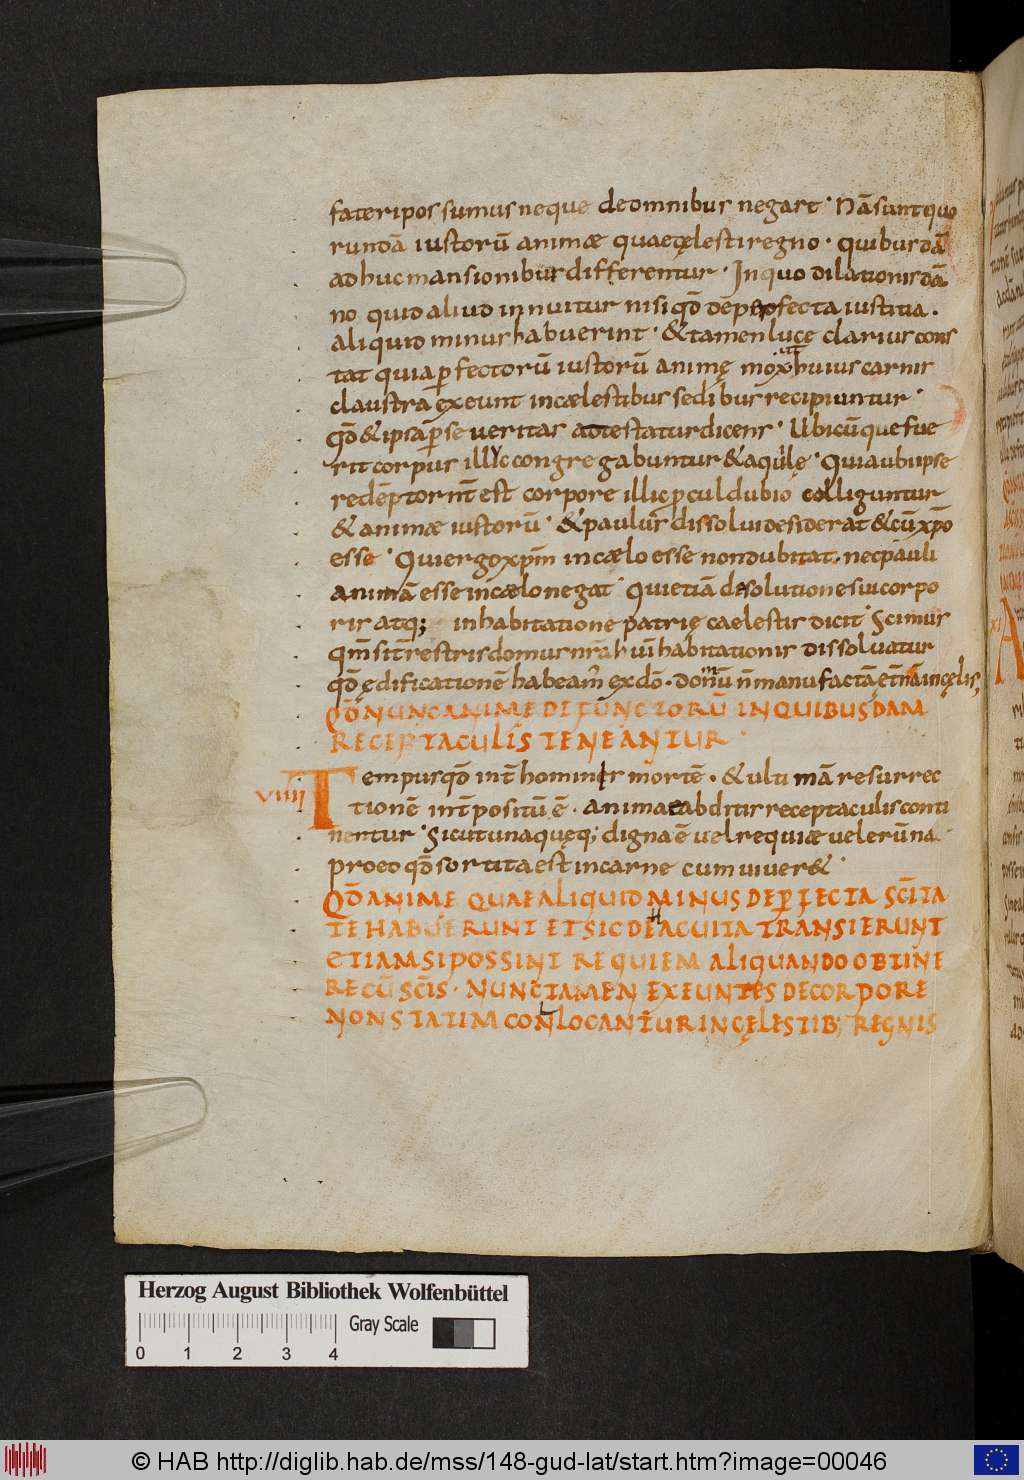 fateri possumus neque de omnibus negare · Nā sunt quo
rundā iustorū animae quae cęlesti regno · quibusdā
adhuc mansionibus differentur · In quo dilationis dā
no quid aliud innuitur nisi qđ de perfecta iustitia ·
aliquid minus habuerint · & tamen luce clarius cons
tat quia ꝑfectorū iustorū animę mox ut huius carnis
claustra exeunt in cælestibus sedibus recipiuntur ·
qđ & ipsa ꝑ se veritas adtestatur dicens · Ubicūque fue
rit corpus illic congregabuntur & aquilę · Quia ubi ipse
redēptor nr̄ est corpore illic ꝓcul dubio colliguntur
& animae iustorū · & paulus dissolui desiderat & cū xp̄o
esse · Qui ergo xp̄m in cælo esse non dubitat · nec pauli
animā esse in cælo negat · Qui etiā de solutione sui corpo
ris atq; inhabitatione patrię caelestis dicit · Scimus
qm̄ si tr̄restris domus nr̄a huius habitationis dissoluatur
qđ ędificationē habeam' ex dō · domū n̄ manu factā ęt̄nā in cęlis;
QĐ NUNC ANIME DEFUNCTORŪ IN QUIBUSDAM
RECEPTACULIS TENEANTUR ·
VIIII
Tempus qđ int̄ hominis mortē · & ultimā resurrec
tionē int̄positū ē · anima abditis receptaculis conti
nentur · Sicut unaquęq; digna ē vel requiae vel erūna ·
pro eo qđ sortita est in carne cum viver& ·
QĐ ANIME QUAE ALIQUID MINUS DE PERFECTA SC̄ITA
TE HABUERUNT ET SIC DE HAC UITA TRANSIERUNT
ETIAM SI POSSINT REQUIEM ALIQUANDO OBTINE
RE CŪ SC̄IS · NUNC TAMEN EXEUNTES DE CORPORE
NON STATIM CONLOCANTUR IN CĘLESTIB; REGNIS
Herzog August Bibliothek Wolfenbüttel
Gray Scale
0 1 2 3 4
© HAB http://diglib.hab.de/mss/148-gud-lat/start.htm?image=00046